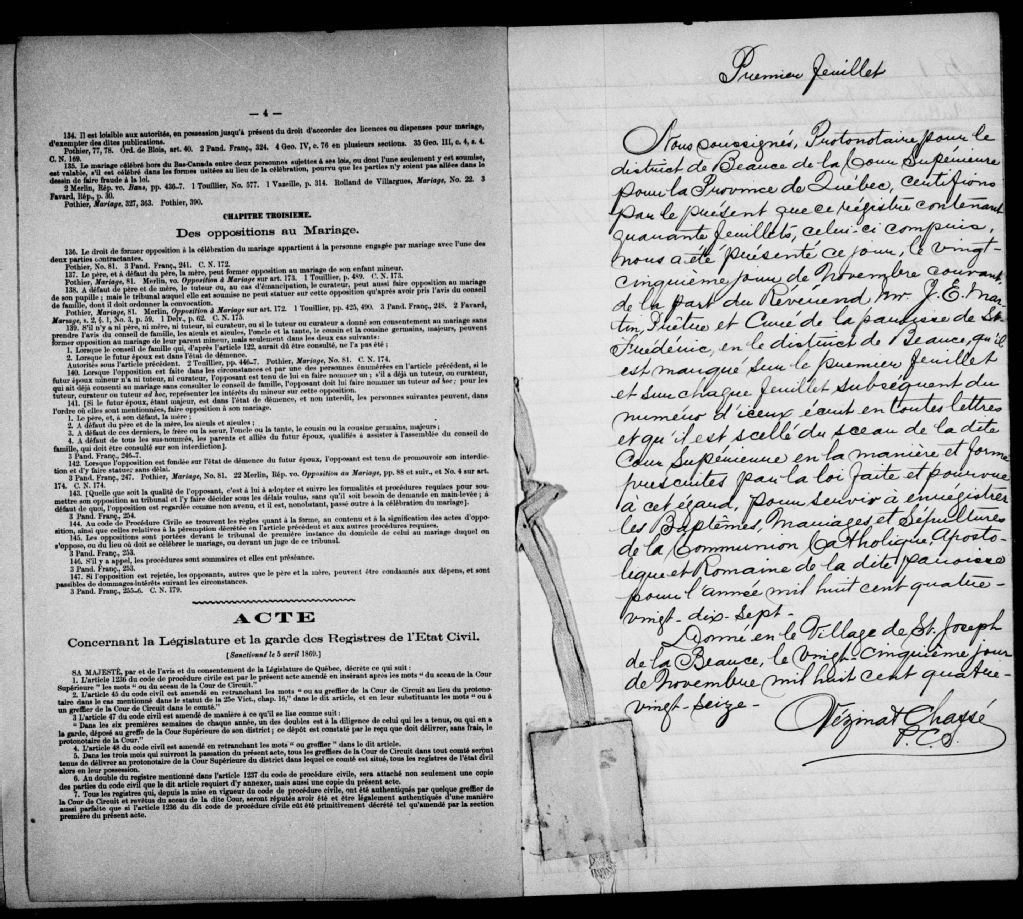 — 4 —
134. Il est loisible aux autorités, en possession jusqu'à présent du droit d'accorder des licences ou dispenses pour mariage,
d'exempter des dites publications.
Pothier, 77, 78. Ord. de Blois, art. 40. 2 Pand. Franç., 324. 4 Geo. IV, c. 76 en plusieurs sections. 35 Geo. III, c. 4, s. 4.
C. N. 169.
135. Le mariage célébré hors du Bas-Canada entre deux personnes sujettes à ses lois, ou dont l'une seulement y est soumise,
est valable, s'il est célébré dans les formes usitées au lieu de la célébration, pourvu que les parties n'y soient pas allées dans le
dessin de faire fraude à la loi.
2 Merlin, Rép. vo. Bans, pp. 436-7. 1 Touillier, No. 577. 1 Vazeille, p. 314. Rolland de Villargues, Mariage, No. 22. 3
Favard, Rép., p. 30.
Pothier, Mariage, 327, 363. Pothier, 390.
CHAPITRE TROISIEME.
Des oppositions au Mariage.
136. Le droit de former opposition à la célébration du mariage appartient à la personne engagée par mariage avec l'une des
deux parties contractantes.
Pothier, No. 81. 3 Pand. Franç., 241. C. N. 172.
137. Le père, et à défaut du père, la mère, peut former opposition au mariage de son enfant mineur.
Pothier, Mariage, 81. Merlin, vo. Opposition à Mariage sur art. 173. 1 Touillier, p. 489. C. N. 173.
138. A défaut de père et de mère, le tuteur ou, au cas d'émancipation, le curateur, peut aussi faire opposition au mariage
de son pupille ; mais le tribunal auquel elle est soumise ne peut statuer sur cette opposition qu'après avoir pris l'avis du conseil de
famille, dont il doit ordonner la convocation.
Pothier, Mariage, 81. Merlin, Opposition à Mariage sur art. 172. 1 Touillier, pp. 425, 490. 3 Pand. Franç., 248. 2 Favard,
Mariage, s. 2, §. 1, No. 3, p. 59. 1 Delv., p. 62. C. N. 175.
139. S'il n'y a ni père, ni mère, ni tuteur, ni curateur, ou si le tuteur ou curateur a donné son consentement au mariage sans
prendre l'avis du conseil de famille, les aïeuls et aïeules, l'oncle et la tante, le cousin et la cousine germains, majeurs, peuvent
former opposition au mariage de leur parent mineur, mais seulement dans les deux cas suivants:
1. Lorsque le conseil de famille qui, d'après l'article 122, aurait dû être consulté, ne l'a pas été ;
2. Lorsque le futur époux est dans l'état de démence.
Autorités sous l'article précédent. 2 Touillier, pp. 446-7. Pothier, Mariage, No. 81. C. N. 174.
140. Lorsque l'opposition est faite dans les circonstances et par une des personnes énumérées en l'article précédent, si le
futur époux mineur n'a ni tuteur, ni curateur, l'opposant est tenu de lui en faire nommer un ; s'il a déjà un tuteur, ou curateur,
qui ait déjà consenti au mariage sans consulter le conseil de famille, l'opposant doit lui faire nommer un tuteur ad hoc ; pour les
tuteur, curateur ou tuteur ad hoc, représenter les intérêts du mineur sur cette opposition.
141. [Si le futur époux, étant majeur, est dans l'état de démence, et non interdit, les personnes suivantes peuvent, dans
l'ordre où elles sont mentionnées, faire opposition à son mariage.
1. Le père, et, à son défaut, la mère ;
2. A défaut du père et de la mère, les aïeuls et aïeules ;
3. A défaut de ces derniers, le frère ou la sœur, l'oncle ou la tante, le cousin ou la cousine germains, majeurs ;
4. A défaut de tous les sus-nommés, les parents et alliés du futur époux, qualifiés à assister à l'assemblée du conseil de
famille, qui doit être consulté sur son interdiction].
3 Pand. Franç., 246-7.
142. Lorsque l'opposition est fondée sur l'état de démence du futur époux, l'opposant est tenu de promouvoir son interdiction
et d'y faire statuer sans délai.
3 Pand. Franç., 247. Pothier, Mariage, No. 81. 22 Merlin, Rép. vo. Opposition au Mariage, pp. 88 et suiv., et No. 4 sur art.
174. C. N. 174.
143. [Quelque que soit la qualité de l'opposant, c'est à lui à adopter et suivre les formalités et procédures requises pour sou-
mettre son opposition au tribunal et l'y faire décider sous les délais voulus, sans qu'il soit besoin de demande en main-levée ; à
défaut de quoi, l'opposition est regardée comme non avenue, et il est, nonobstant, passé outre à la célébration du mariage].
3 Pand. Franç., 254.
144. Au code de Procédure Civile se trouvent les règles quant à la forme, au contenu et à la signification des actes d'oppo-
sition, ainsi que celles relatives à la péremption décrétée en l'article précédent et aux autres procédures requises.
145. Les oppositions sont portées devant le tribunal de première instance du domicile de celui au mariage duquel on
s'oppose, ou du lieu où doit se célébrer le mariage, ou devant un juge de ce tribunal.
3 Pand. Franç., 253.
146. S'il y a appel, les procédures sont sommaires et elles ont préséance.
3 Pand. Franç., 253.
147. Si l'opposition est rejetée, les opposants, autres que le père et la mère, peuvent être condamnés aux dépens, et sont
passibles de dommages-intérêts suivant les circonstances.
3 Pand. Franç., 255-6. C. N. 179.
ACTE
Concernant la Législature et la garde des Registres de l'Etat Civil.
[Sanctionné le 5 avril 1869.]
SA MAJESTÉ, par et de l'avis et du consentement de la Législature de Québec, décrète ce qui suit :
1. L'article 1236 du code de procédure civile est par le présent acte amendé en insérant après les mots " du sceau de la Cour
Supérieure " les mots " ou du sceau de la Cour de Circuit."
2. L'article 45 du code civil est amendé en retranchant les mots " ou au greffier de la Cour de Circuit au lieu du protono-
taire dans le cas mentionné dans le statut de la 25e Vict., chap. 16," dans le dit article, et en leur substituants les mots " ou à
un greffier de la Cour de Circuit dans le comté."
3 L'article 47 du code civil est amendé de manière à ce qu'il se lise comme suit :
" Dans les six premières semaines de chaque année, un des doubles est à la diligence de celui qui les a tenus, ou qui en a
la garde, déposé au greffe de la Cour Supérieure de son district ; ce dépôt est constaté par le reçu que doit délivrer, sans frais, le
protonotaire de la Cour."
4. L'article 48 du code civil est amendé en retranchant les mots " ou greffier " dans le dit article.
5. Dans les trois mois qui suivront la passation du présent acte, tous les greffiers de la Cour de Circuit dans tout comté seront
tenus de délivrer au protonotaire de la Cour Supérieure du district dans lequel ce comté est situé, tous les registres de l'état civil
alors en leur possession.
6. Au double du registre mentionné dans l'article 1237 du code de procédure civile, sera attaché non seulement une copie
des parties du code civil que le dit article requiert d'y annexer, mais aussi une copie du présent acte.
7. Tous les registres qui, depuis la mise en vigueur du code de procédure civile, ont été authentiqués par quelque greffier de
la Cour de Circuit et revêtus du sceau de la dite Cour, seront réputés avoir été et être légalement authentiqués d'une manière
aussi parfaite que si l'article 1236 du dit code de procédure civile eût été primitivement décrété tel qu'amendé par la section
première du présent acte.
Premier feuillet
Nous soussignés, Protonotaire pour le
district de Beauce de la Cour Supérieure
pour la Province de Québec, certifions
par le présent que ce régistre contenant
quarante feuillets, celui-ci compris,
nous a été présenté ce jour, le vingt-
cinquième jour, de Novembre courant,
de la part du Révérend Mr. J. E. Mar-
tin, Prêtre et Curé de la paroisse de St.
Frédéric, en le district de Beauce, qu'il
est marqué sur le premier feuillet
et sur chaque feuillet subséquent du
numéro d'iceux écrit en toutes lettres
et qu'il est scellé du sceau de la dite
Cour Supérieure en la manière et forme
prescrites par la loi faite et pourvue
à cet égard, pour servir à enrégistrer
les Baptêmes, Mariages, et Sépultures
de la Communion Catholique Aposto-
lique et Romaine de la dite paroisse
pour l'année mil huit cent quatre-
vingt-dix-sept-
Donné en le Village de St. Joseph
de la Beauce, le vingt-cinquième jour
de Novembre mil huit cent quatre-
vingt-seize-
Vézina & Chassé
P.C.S.